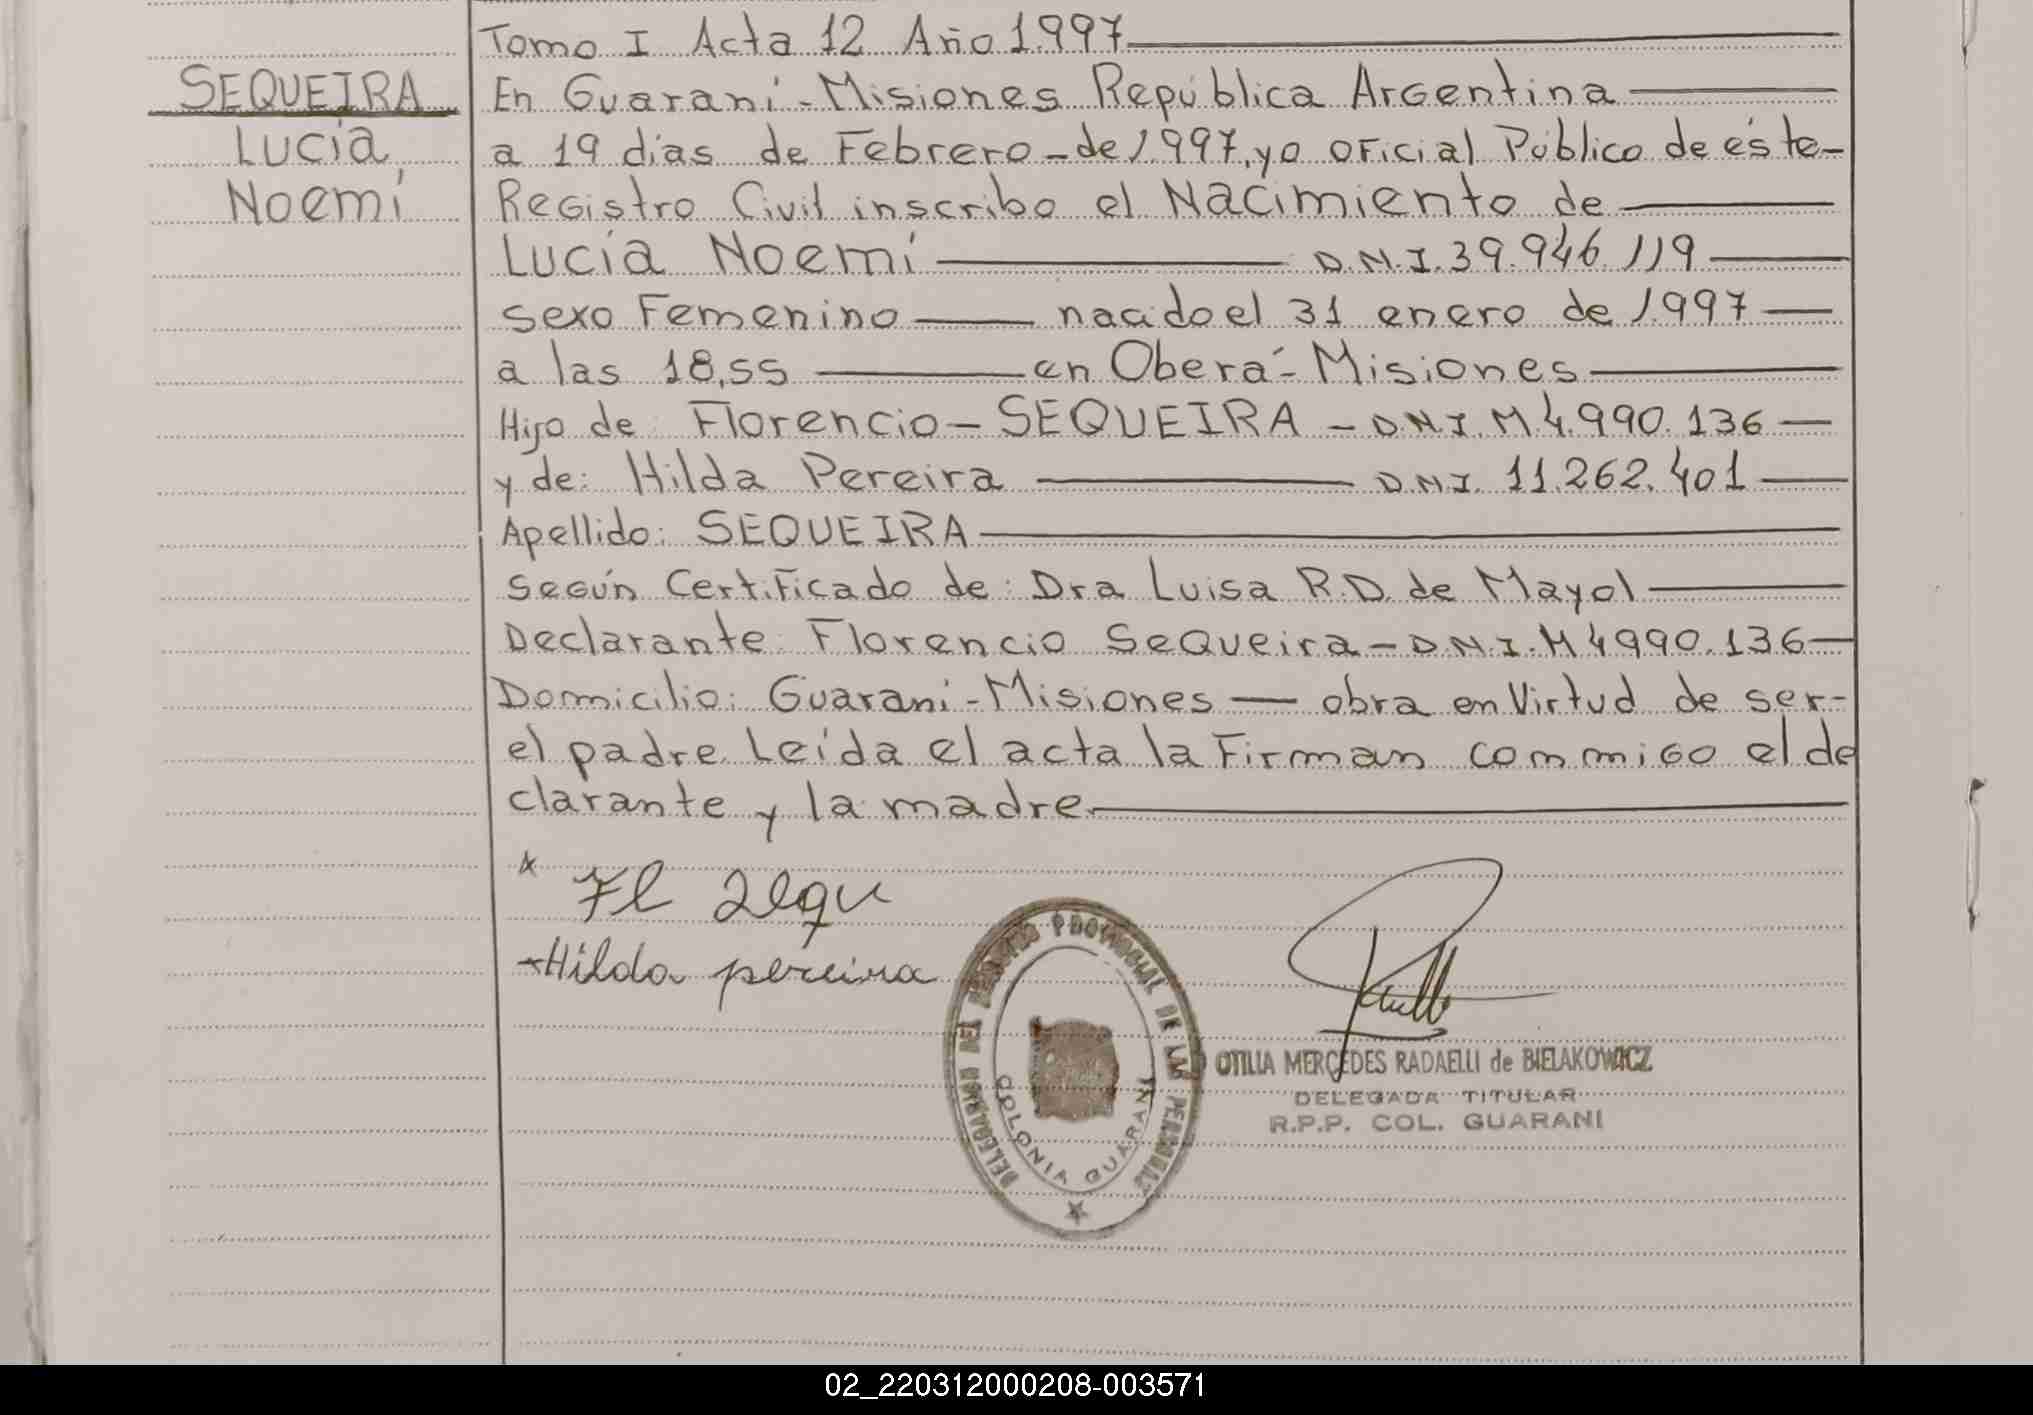 Tomo I Acta 12 Año 1997
SEQUEIRA
Lucía
Noemí
En Guaraní - Misiones República Argentina
a 19 días de Febrero - de 1997, yo oficial Público de éste -
Registro Civil inscribo el Nacimiento de
Lucía Noemí D.N.I. 39.946.119
sexo Femenino nacido el 31 enero de 1997
a las 18,55 en Oberá - Misiones
Hijo de: Florencio - SEQUEIRA - D.N.I. M 4.990.136
y de: Hilda Pereira D.N.I. 11.262.401
Apellido: SEQUEIRA
Según Certificado de: Dra Luisa R.D. de Mayol
Declarante: Florencio Sequeira - D.N.I. M 4990.136
Domicilio: Guaraní - Misiones — obra en Virtud de ser -
el padre. Leída el acta la Firman commigo el de
clarante y la madre
Fl Sequ
Hilda pereira
DELEGACION DEL REGISTRO PROVINCIAL DE LAS PERSONAS
COLONIA GUARANI
OTILIA MERCEDES RADAELLI de BIELAKOWICZ
DELEGADA TITULAR
R.P.P. COL. GUARANI
02_220312000208-003571